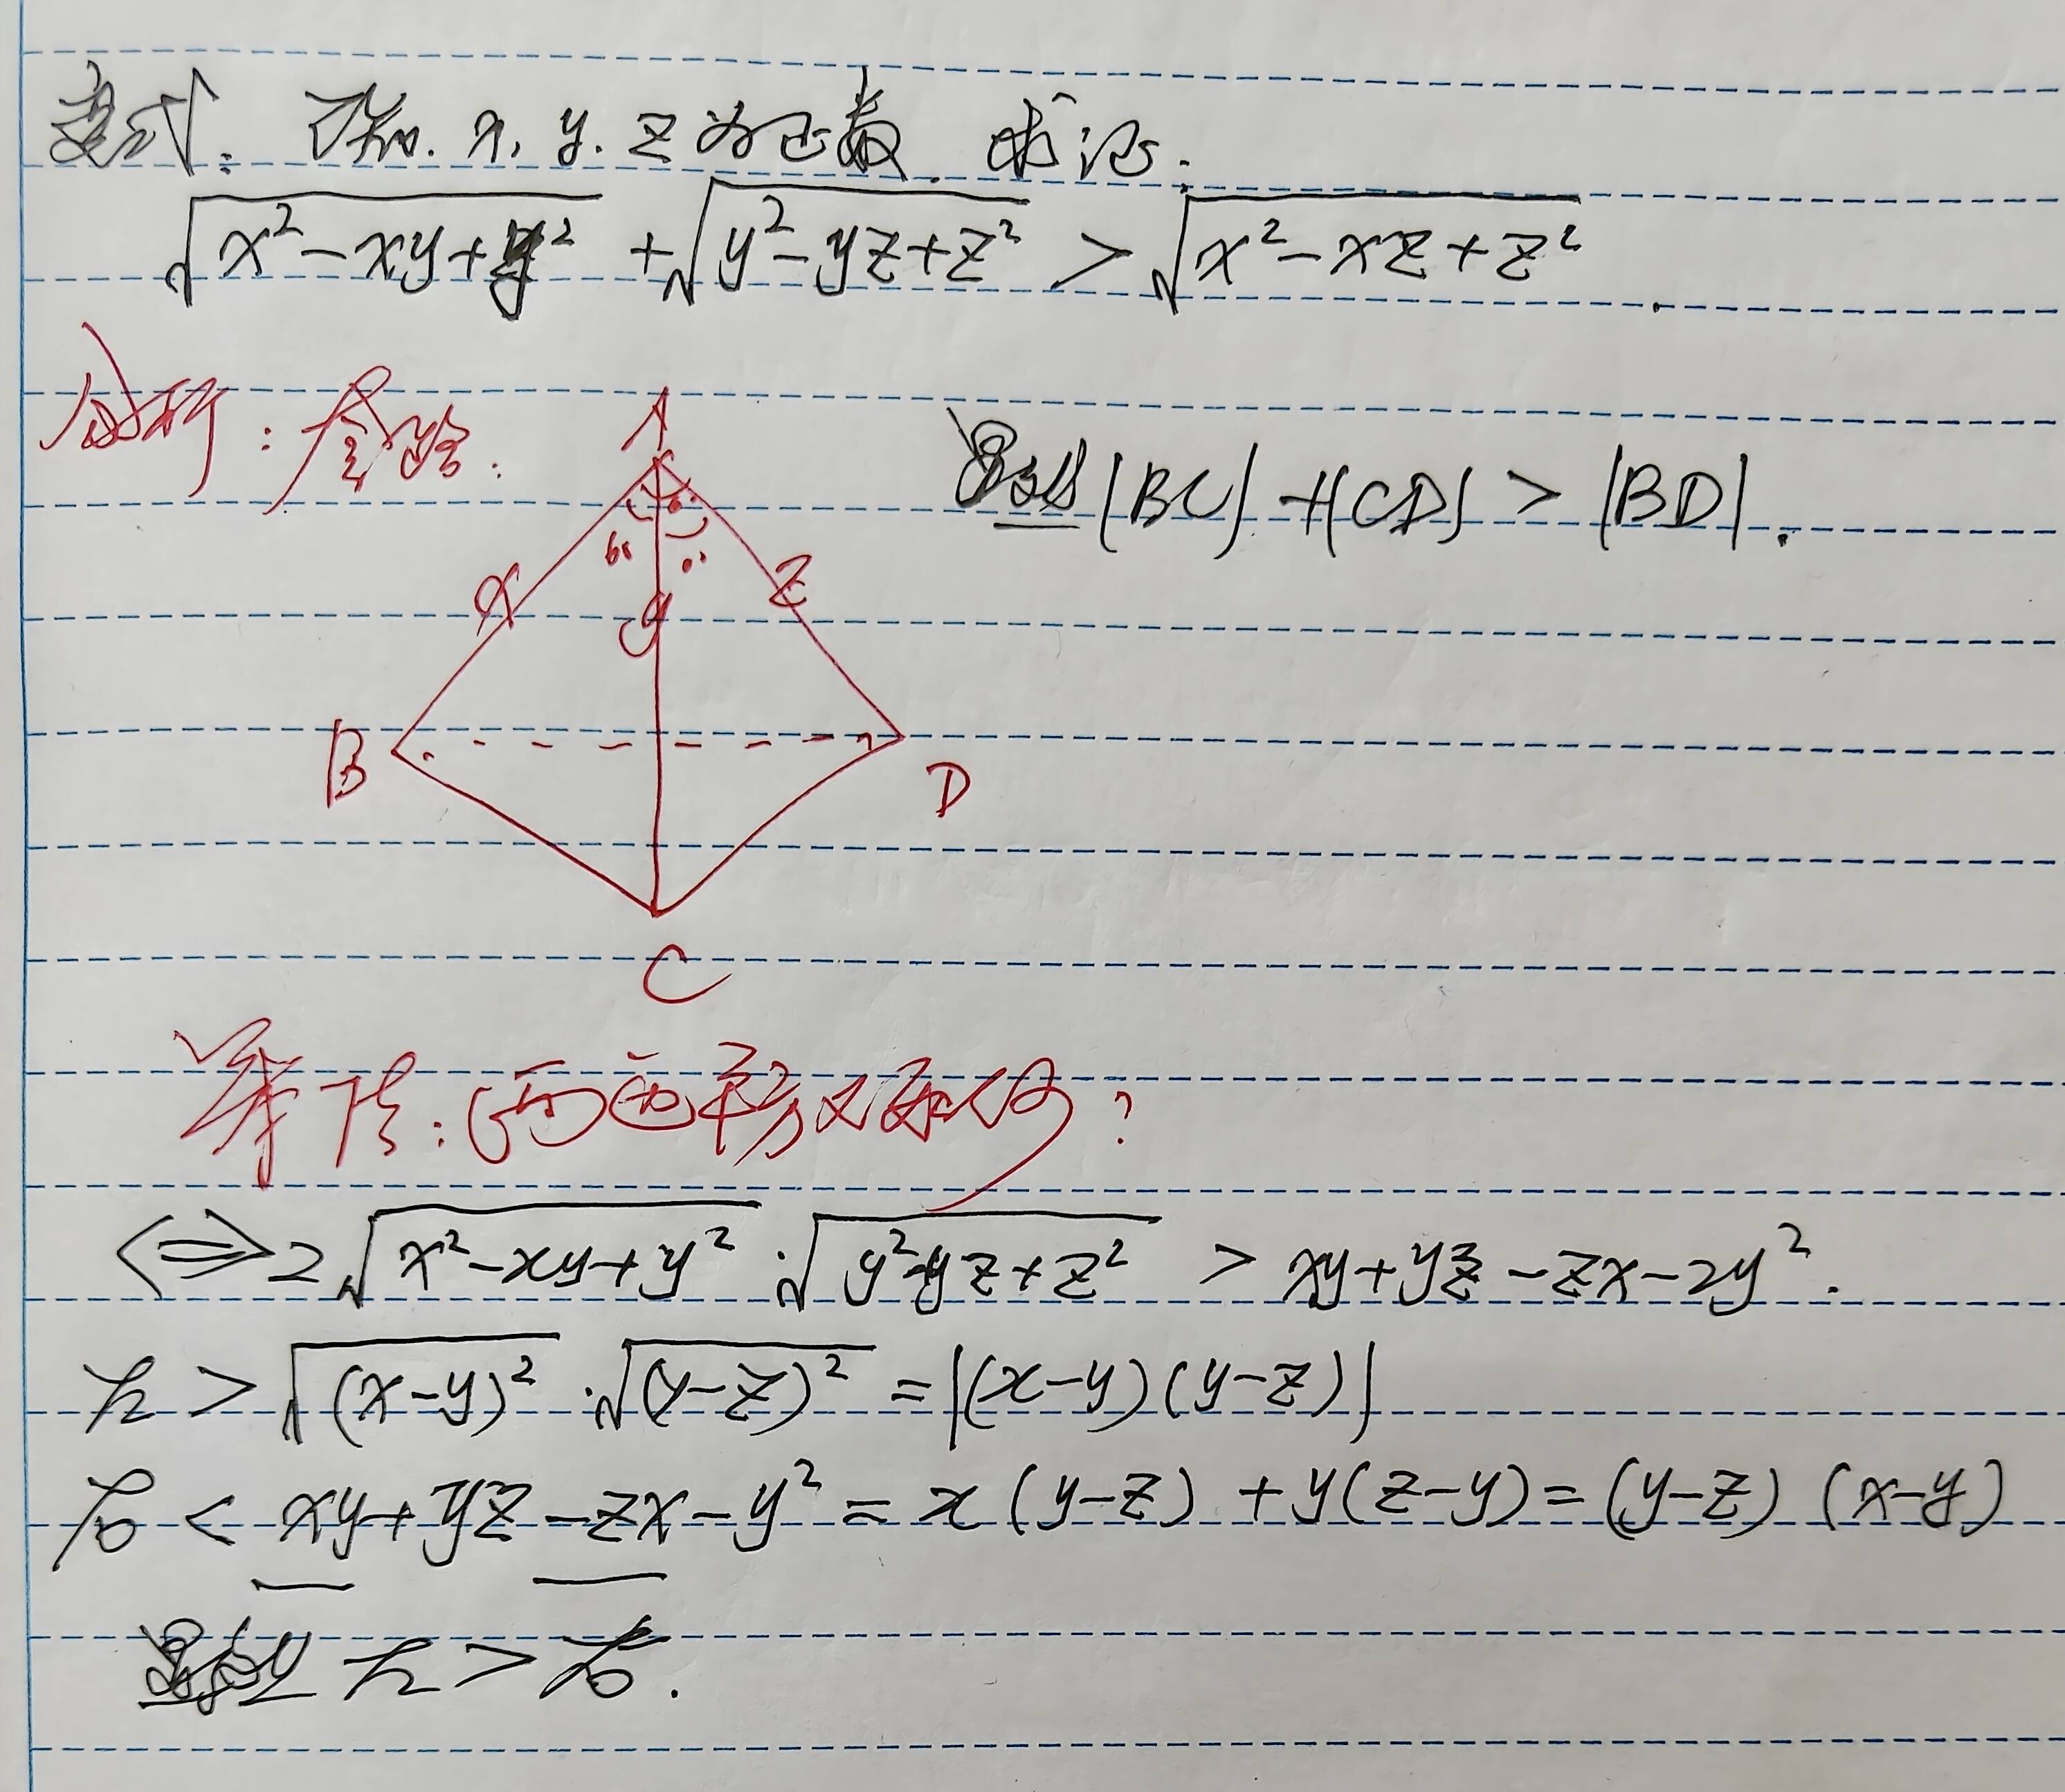 变式: 已知. x, y. z 为正数. 求证:
√(x²-xy+y²) + √(y²-yz+z²) > √(x²-xz+z²).
分析: 
A
显然 |BC|+|CD| > |BD|.
60°
x
y
z
B
D
C
算下法: (两边平方又如何?
⇔ 2√(x²-xy+y²) · √(y²-yz+z²) > xy+yz-zx-2y².
左 > √(x-y)² · √(y-z)² = |(x-y)(y-z)|
右 < xy+yz-zx-y² = x(y-z)+y(z-y) = (y-z)(x-y)
显然 左 > 右.